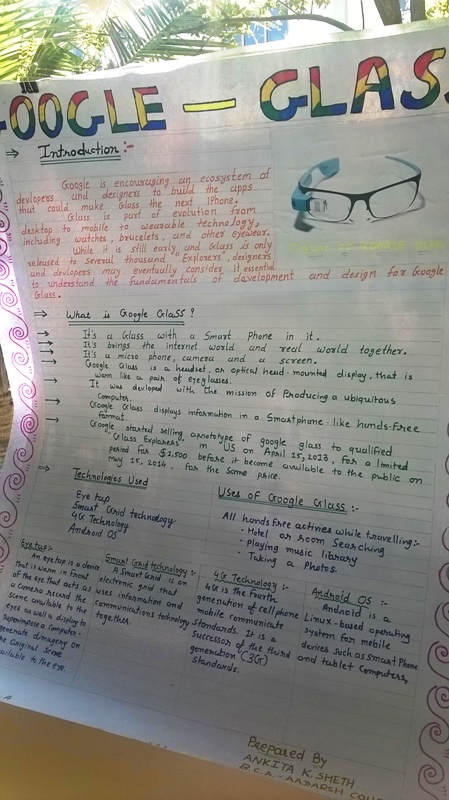 GOOGLE — GLASS
⇒ Introduction:-
Google is encouraging an ecosystem of
devlopers and designers to build the apps
that could make Glass the next IPhone.
Glass is part of evolution from
desktop to mobile to wearable technology,
including watches, bracelets, and other eyewear.
While it is still early and Glass is only
released to several thousand "Explorers", designers
and devlopers may eventually consider it essential
to understand the fundamentals of development and design for Google
Glass.
⇒ What is Google Glass?
→ It's a Glass with a Smart Phone in it.
→ It's brings the internet world and real world together.
→ It's a micro phone, camera and a screen.
→ Google Glass is a headset, or optical head-mounted display, that is
warm like a pair of eyeglasses.
→ It was devloped with the mission of Producing a ubiquitous
Computer.
→ Google Glass displays information in a Smartphone like hands-Free
Format.
→ Google started selling a prototype of google glass to qualified
"Glass Explorers" in US on April 15, 2013, for a limited
period for $1,500 before it become available to the public on
May 15, 2014, for the same price.
⇒ Technologies Used
Eye tap
Smart Grid technology
4G Technology
Android OS
Uses of Google Glass :-
All hands Free activies while travelling:-
- Hotel or room Searching
- Playing music library
- Taking a Photos.
Eye tap:-
An eye tap is a device
that is warm in front
of the eye that acts as
a camera record the
scene available to the
eyes as well a display to
Superimpose a Computer-
generate dimagery on
the original scene
available to the eye.
Smart Grid technology:-
A Smart Grid is an
electronic grid that
uses information and
communications technology
together.
4G Technology :-
4G is the fourth
generation of cellphone
mobile communicate
standards. It is a
successor of the third
generation (3G)
standards.
Android OS :-
Android is a
Linux-based operating
system for mobile
devices such as Smart Phone
and tablet Computers,
Prepared By
ANKITA K. SHETH
B.C.A - AADARSH